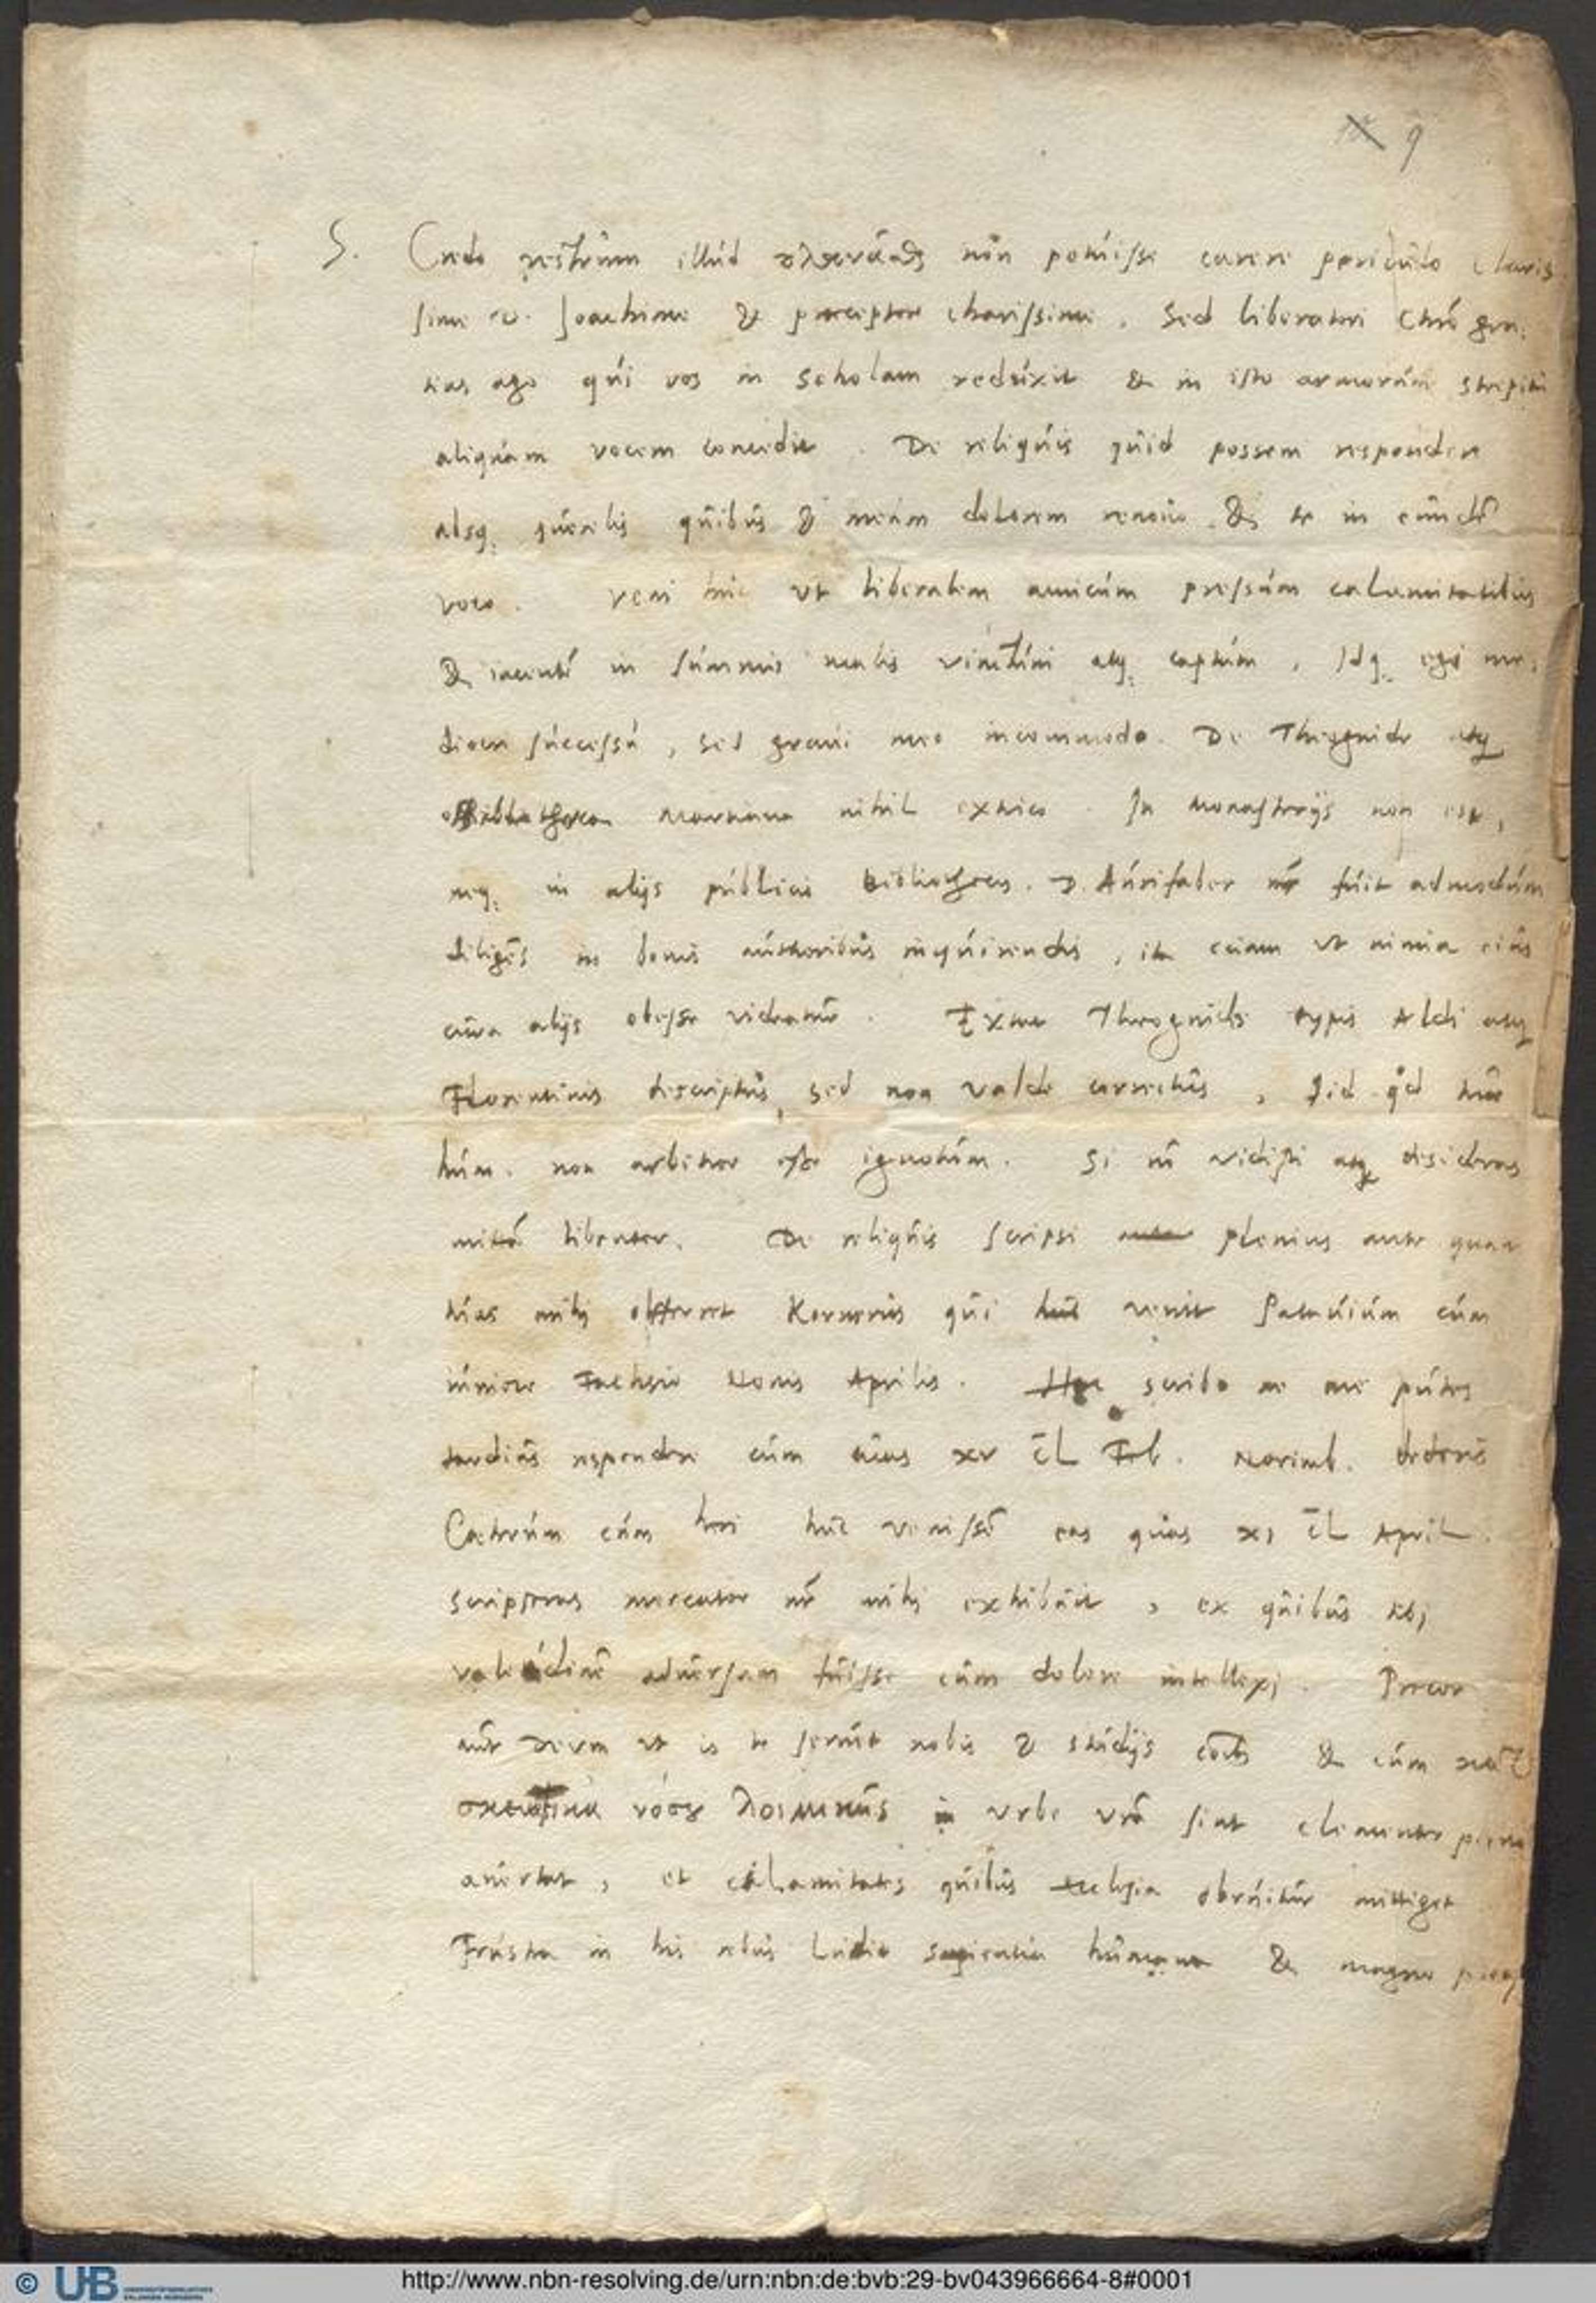 9
S. Credo vestrum illud non potuisse carere periculo claris
sime v. Joachime & praeceptor charissime. Sed liberatori Chro gra,
tias ago qui vos in scholam reduxit & in isto armorum strepitu
aliquam vocem concedit. De reliquis quid possem respondere
absq; querelis quibus & meum dolorem renovo & te in eundē
voco. veni huc ut liberarem amicum pressum calamitatibus
& iacentē in summis malis vinctum atq; captum. Idq; egi me,
diocri successu, sed gravi meo incommodo. De Theognide atq
Martiana nihil extrico. In Monasterijs non est,
neq; in alijs publicis Bibliothecis. D. Aurifaber fuit admodum
diligēs in bonis authoribus inquirendis, ita etiam ut nimia eius
cura alijs obesse videatur. Extat Theognidis typis Aldi atq
Florentinis descriptus, sed non valde correctus, sid qd
tum non arbitror esse ignotum. Si nō vidisti atq desideras
mittā libenter. De reliquis scripsi plenius ante quam
tuas mihi offerret Kornerus qui venit Patavium cum
iuniore Fachsio Nonis Aprilis. scribo ne me putes
tardius respondere cum tuas xv C̄L Feb. Norimb. dederis
Caeterum cum heri huc venissē eas quas xi C̄L April.
scripseras mercator nr̄ mihi exhibuit, ex quibus tibi
valetudinē adversam fuisse cum dolore intellexi. Precor
aūt deum ut is te servet nobis & studijs & cum
νόσου in urbe vr̄a sint clementer
avertat, et calamitates quibus ecclesia obruitur mittiget
Frustra in his rebus ludit sapientia humana & magno
© UB
http://www.nbn-resolving.de/urn:nbn:de:bvb:29-bv043966664-8#0001